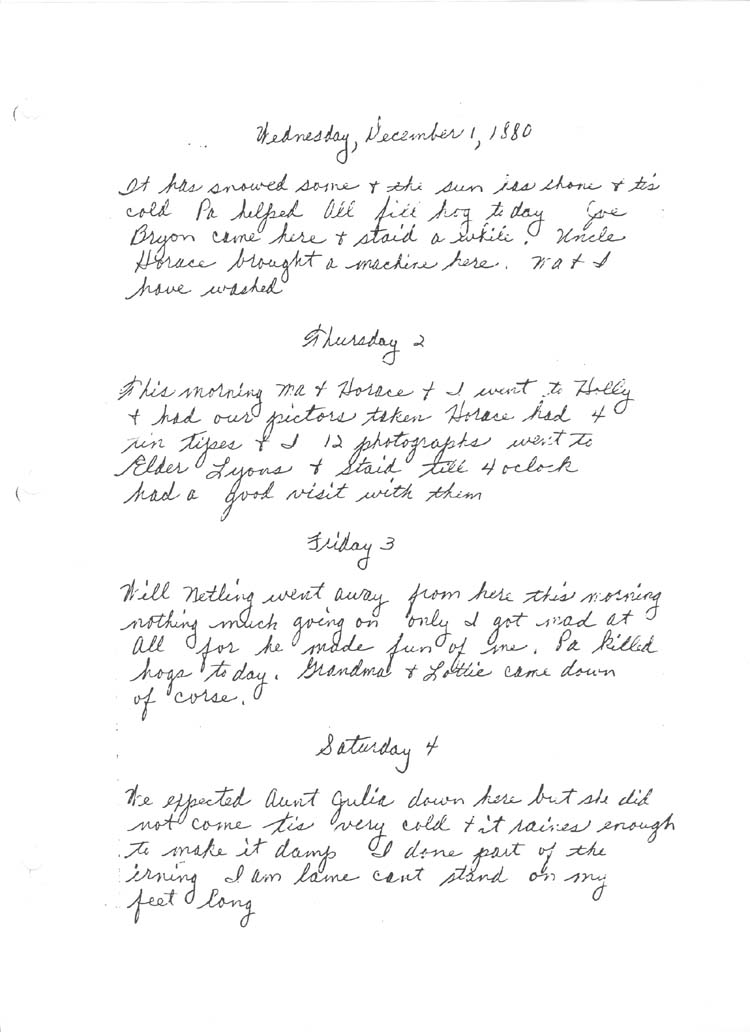 Wednesday, December 1, 1880
It has snowed some + the sun has shone + tis
cold Pa helped All kill hog to day Joe
Bryon came here + staid a while. Uncle
Horace brought a machine here. Ma + I
have washed
Thursday 2
This morning Ma + Horace + I went to Holly
+ had our pictors taken Horace had 4
tin tipes + I 12 photographs went to
Elder Lyons + staid till 4 oclock
had a good visit with them
Friday 3
Will Netling went away from here this morning
nothing much going on only I got mad at
All for he made fun of me. Pa killed
hogs to day. Grandma + Lottie came down
of corse.
Saturday 4
We expected Aunt Gulia down here but she did
not come tis very cold + it raines enough
to make it damp I done part of the
irning I am lame cant stand on my
feet long